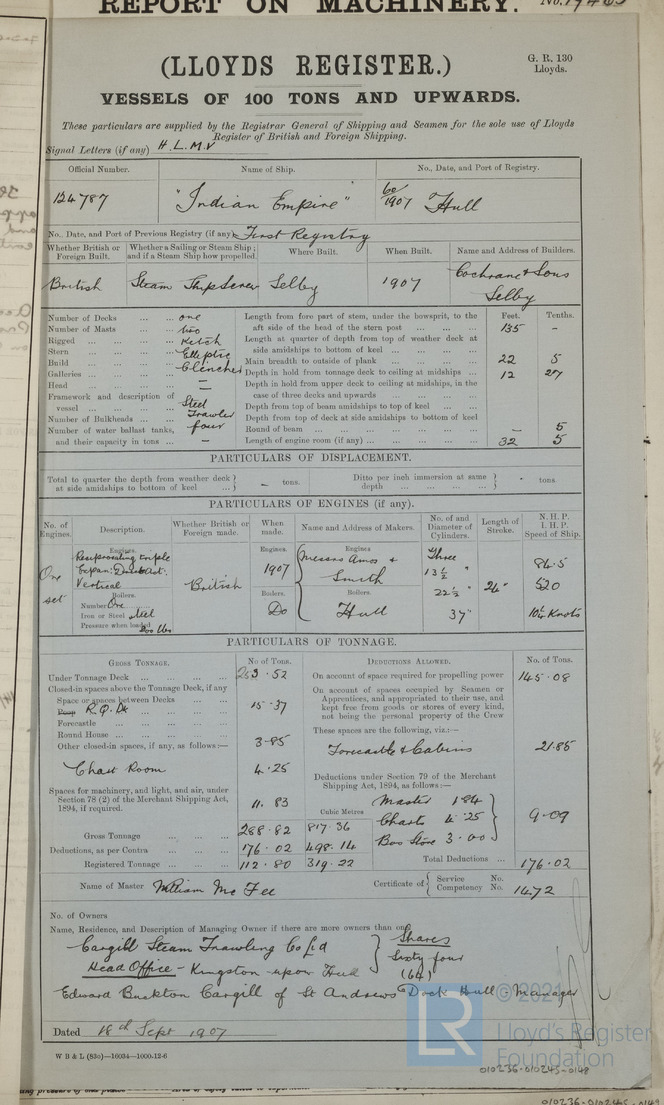 REPORT ON MACHINERY.
(LLOYDS REGISTER.)
G. R. 130
Lloyds.
VESSELS OF 100 TONS AND UPWARDS.
These particulars are supplied by the Registrar General of Shipping and Seamen for the sole use of Lloyds
Register of British and Foreign Shipping.
Signal Letters (if any) H. L. M. V
Official Number. Name of Ship. No., Date, and Port of Registry.
124787 "Indian Empire" 60/1907 Hull
No. Date, and Port of Previous Registry (if any) First Registry
Whether British or Foreign Built. Whether a Sailing or Steam Ship; and if a Steam Ship how propelled. Where Built. When Built. Name and Address of Builders.
British Steam Ship Screw Selby 1907 Cochrane & Sons
Selby
Number of Decks ... ... one
Number of Masts ... ... two
Rigged ... ... ... ... Ketch
Stern ... ... ... ... Elliptic
Build ... ... ... ... Clencher
Galleries ... ... ... ... —
Head ... ... ... ... —
Framework and description of
vessel ... ... ... ... Steel
Trawler
Number of Bulkheads ... ... four
Number of water ballast tanks,
and their capacity in tons ... —
Feet. Tenths.
Length from fore part of stem, under the bowsprit, to the
aft side of the head of the stern post ... ... ... 135 –
Length at quarter of depth from top of weather deck at
side amidships to bottom of keel ... ... ... ...
Main breadth to outside of plank ... ... ... ... 22 5
Depth in hold from tonnage deck to ceiling at midships ... 12 27
Depth in hold from upper deck to ceiling at midships, in the
case of three decks and upwards ... ... ... ...
Depth from top of beam amidships to top of keel ... ...
Depth from top of deck at side amidships to bottom of keel
Round of beam ... ... ... ... ... ... — 5
Length of engine room (if any) ... ... ... ... 32 5
PARTICULARS OF DISPLACEMENT.
Total to quarter the depth from weather deck
at side amidships to bottom of keel ... ... – tons.
Ditto per inch immersion at same
depth ... ... ... ... tons.
PARTICULARS OF ENGINES (if any).
No. of Engines. Description. Whether British or Foreign made. When made. Name and Address of Makers. No. of and Diameter of Cylinders. Length of Stroke. N. H. P. I. H. P. Speed of Ship.
One set
Engines.
Reciprocating triple
Expan: Direct Act:
Vertical
Boilers.
Number One
Iron or Steel Steel
Pressure when loaded 200 lbs
British
Engines.
1907
Boilers.
Do
Engines
Messrs Amos &
Smith
Boilers.
Hull
Three
13½
22½ "
37"
24"
86.5
520
10¼ Knots
PARTICULARS OF TONNAGE.
GROSS TONNAGE. No of Tons.
Under Tonnage Deck ... ... ... ... 253.52
Closed-in spaces above the Tonnage Deck, if any
Space or spaces between Decks ... ...
Poop R.Q. Dk 15.37
Forecastle ... ... ... ...
Round House ... ... ... ...
Other closed-in spaces, if any, as follows:— 3.85
Chart Room 4.25
Spaces for machinery, and light, and air, under
Section 78 (2) of the Merchant Shipping Act,
1894, if required. 11.83
Cubic Metres
Gross Tonnage ... ... ... 288.82 817.36
Deductions, as per Contra ... ... ... 176.02 498.14
Registered Tonnage ... ... ... 112.80 319.22
DEDUCTIONS ALLOWED. No. of Tons.
On account of space required for propelling power 145.08
On account of spaces occupied by Seamen or
Apprentices, and appropriated to their use, and
kept free from goods or stores of every kind,
not being the personal property of the Crew
These spaces are the following, viz.:—
Forecastle & Cabins 21.85
Deductions under Section 79 of the Merchant
Shipping Act, 1894, as follows:—
Master 1.84
Charts 4.25
Bos Store 3.00
9.09
Total Deductions ... 176.02
Name of Master William Mc Fee
Certificate of Service No.
Competency No. 1472
No. of Owners
Name, Residence, and Description of Managing Owner if there are more owners than one
Cargill Steam Trawling Co Ltd
Head Office – Kingston upon Hull
Shares
Sixty four
(64)
Edward Buckton Cargill of St Andrews Dock Hull Manager
Dated 18th Sept 1907
W B & L (83c)—16034—1000-12-6
© 2021
Lloyd's Register
Foundation
LR
010236-010245-0148
010236-010245-0149